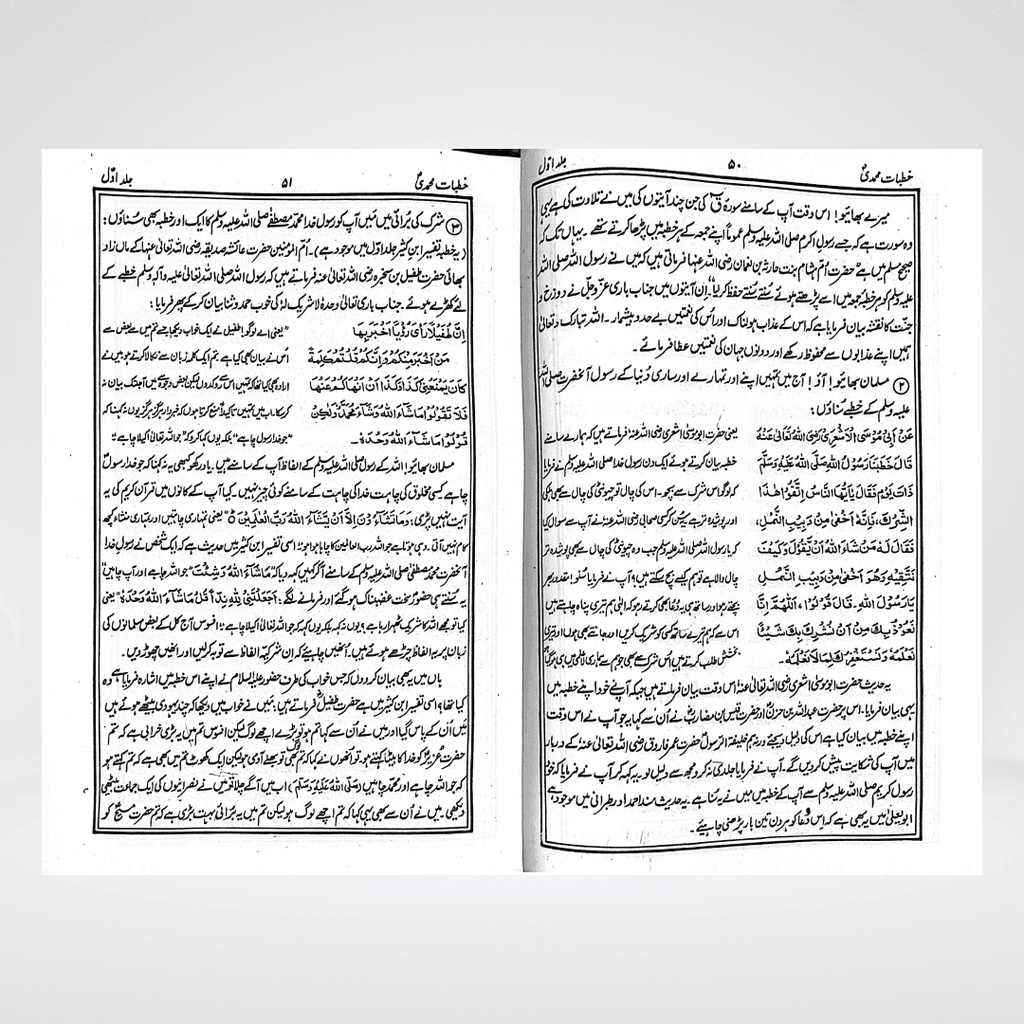 خطبات محمدیؐ
۵۰
جلد اوّل
میرے بھائیو! اس وقت آپ کے سامنے سورۂ قٓ کی جن چند آیتوں کی میں نے تلاوت کی ہے یہی
وہ سورت ہے کہ جسے رسول اکرم صلی اللہ علیہ وسلم عموماً اپنے جمعہ کے ہر خطبہ میں پڑھا کرتے تھے۔ یہاں تک کہ
صحیح مسلم میں ہے حضرت ام ہشام بنت حارثہ بن نعمان رضی اللہ عنہا فرماتی ہیں کہ میں نے رسول اللہ صلی اللہ
علیہ وسلم کو ہر خطبۂ جمعہ میں اسے پڑھتے ہوئے سنتے سنتے حفظ کر لیا۔ اِن آیتوں میں جناب باری عزّوجل نے دوزخ و
جنّت کا نقشہ بیان فرمایا ہے کہ اس کے عذاب ہولناک اور اُس کی نعمتیں بے حد و بیشمار۔ اللہ تبارک و تعالیٰ
ہمیں اپنے عذابوں سے محفوظ رکھے اور دونوں جہان کی نعمتیں عطا فرمائے۔
(۲) مسلمان بھائیو! آؤ! آج میں تمہیں اپنے اور تمہارے اور ساری دُنیا کے رسول آنحضرت صلی اللہ
علیہ وسلم کے خطبے سناؤں:
عَنْ اَبِیْ مُوْسَی الْاَشْعَرِیِّ رَضِیَ اللّٰہُ تَعَالٰی عَنْہُ یعنی حضرت ابو موسیٰ اشعری رضی اللہ عنہٗ فرماتے ہیں کہ ہمارے سامنے
قَالَ خَطَبَنَا رَسُوْلُ اللّٰہِ صَلَّی اللّٰہُ عَلَیْہِ وَسَلَّمَ خطبہ بیان کرتے ہوئے ایک دن رسول خدا صلی اللہ علیہ وسلم نے فرمایا
ذَاتَ یَوْمٍ فَقَالَ یٰاَیُّہَا النَّاسُ اتَّقُوْا ھٰذَا کہ لوگو اس شرک سے بچو۔ اس کی چال تو چیونٹی کی چال سے بھی ہلکی
الشِّرْکَ، فَاِنَّہٗ اَخْفٰی مِنْ دَبِیْبِ النَّمْلِ، اور پوشیدہ تر ہے یہ سُن کر کسی صحابی رضی اللہ عنہٗ نے آپ سے سوال کیا
فَقَالَ لَہٗ مَنْ شَاءَ اللّٰہُ اَنْ یَّقُوْلَ وَکَیْفَ کہ یا رسول اللہ صلی اللہ علیہ وسلم جب وہ چیونٹی کی چال سے بھی پوشیدہ تر
نَتَّقِیْہِ وَھُوَ اَخْفٰی مِنْ دَبِیْبِ النَّمْلِ چال والا ہے تو ہم اس سے کیسے بچ سکتے ہیں؟ آپ نے فرمایا سُنو!
یَا رَسُوْلَ اللّٰہِ۔ قَالَ قُوْلُوْا، اَللّٰھُمَّ اِنَّا بچتے رہو اور ساتھ ہی یہ دُعا بھی کرتے رہو کہ الٰہی ہم تیری پناہ چاہتے ہیں
نَعُوْذُ بِکَ مِنْ اَنْ نُّشْرِکَ بِکَ شَیْئًا اس سے کہ ہم تیرے ساتھ کسی کو شریک کریں اور جانتے بھی ہوں اور تیری
نَعْلَمُہٗ وَنَسْتَغْفِرُکَ لِمَا لَا نَعْلَمُہٗ۔ بخشش طلب کرتے ہیں اُس شرک سے بھی جو ہم سے ہماری لاعلمی میں
یہ حدیث حضرت ابو موسیٰ اشعری رضی اللہ تعالیٰ عنہٗ اُس وقت بیان فرماتے ہیں جبکہ آپ نے خود اپنے خطبہ میں
یہی بیان فرمایا۔ اس پر حضرت عبداللہ بن حزنؓ اور حضرت قیس بن مضاربؓ نے اُن سے کہا یہ جو آپ نے اس وقت
اپنے خطبہ میں بیان کیا ہے اس کی دلیل دیجئے ورنہ ہم خلیفۃ الرسولؐ حضرت عمر فاروق رضی اللہ تعالیٰ عنہٗ کے دربار
میں آپ کی شکایت پیش کر دیں گے۔ آپ نے فرمایا جلدی نہ کرو مجھ سے دلیل لو۔ یہ کہہ کر آپ نے فرمایا کہ خود
رسول کریم صلی اللہ علیہ وسلم سے آپ کے خطبہ میں میں نے یہ سُنا ہے۔ یہ حدیث مسند احمد اور طبرانی میں موجود ہے
ابو یعلیٰ میں یہ بھی ہے کہ اس دُعا کو ہر دن تین بار پڑھنی چاہیئے۔
خطبات محمدیؐ
۵۱
جلد اوّل
(۳) شرک کی بُرائی میں مَیں آپ کو رسول خدا محمد مصطفےٰ صلی اللہ علیہ وسلم کا ایک اور خطبہ بھی سُناؤں:
(یہ خطبہ تفسیر ابن کثیر جلد اوّل میں موجود ہے)۔ اُمّ المؤمنین حضرت عائشہ صدیقہ رضی اللہ تعالیٰ عنہا کے ماں زاد
بھائی حضرت طفیل بن سخبرہ رضی اللہ تعالیٰ عنہٗ فرماتے ہیں کہ رسول اللہ صلی اللہ تعالیٰ علیہ وآلہٖ وسلم خطبے کے
لئے کھڑے ہوئے۔ جناب باری تعالیٰ وحدہٗ لاشریک لہٗ کی خوب حمد و ثنا بیان کر کے پھر فرمایا:
اِنَّ طُفَیْلًا رَاٰی رُؤْیَا اَخْبَرَ بِھَا "یعنی اے لوگو! طفیل نے ایک خواب دیکھا جسے تم میں سے بعض سے
مَنْ اَخْبَرَ مِنْکُمْ وَاِنَّکُمْ قُلْتُمْ کَلِمَۃً اُس نے بیان بھی کیا ہے تم ایک کلمہ زبان سے نکالا کرتے ہو میں نے
کَانَ یَمْنَعُنِیْ کَذَا وَکَذَا اَنْ اَنْھَاکُمْ عَنْھَا ارادہ بھی کیا تھا کہ تمہیں اس سے روک دوں لیکن بعض وجوہ سے میں آجتک نہ بیان
فَلَا تَقُوْلُوْا مَاشَاءَ اللّٰہُ وَشَاءَ مُحَمَّدٌ وَّلٰکِنْ کر سکا۔ اب میں تمہیں تاکیداً منع کرتا ہوں کہ خبردار ہرگز ہرگز یوں نہ کہنا کہ
قُوْلُوْا مَا شَاءَ اللّٰہُ وَحْدَہٗ۔ "جو خدا رسول چاہے" بلکہ یوں کہا کرو کہ "جو اللہ تعالیٰ اکیلا چاہے"؛
مسلمان بھائیو! اللہ کے رسول صلی اللہ علیہ وسلم کے الفاظ آپ کے سامنے ہیں۔ یاد رکھو کبھی یہ نہ کہنا کہ جو خدا رسولؐ
چاہے کسی مخلوق کی چاہت خدا کی چاہت کے سامنے کوئی چیز نہیں۔ کیا آپ کے کانوں میں قرآن کریم کی یہ
آیت نہیں پڑی: وَمَا تَشَاءُوْنَ اِلَّا اَنْ یَّشَاءَ اللّٰہُ رَبُّ الْعٰلَمِیْنَ ۝ "یعنی تمہاری چاہتیں اور تمہاری منشا کچھ
کام نہیں آتی۔ وہی ہوتا ہے جو اللہ رب العالمین کا چاہا ہوا ہو؛ اسی تفسیر ابن کثیر میں حدیث ہے کہ ایک شخص نے رسولِ خدا
آنحضرت محمد مصطفےٰ صلی اللہ علیہ وسلم کے سامنے آکر کہیں کہہ دیا کہ "مَاشَاءَ اللّٰہُ وَشِئْتَ" جو اللہ چاہے اور آپ چاہیں
یہ سُنتے ہی حضورؐ سخت غضبناک ہو گئے اور فرمانے لگے: اَجَعَلْتَنِیْ لِلّٰہِ نِدًّا قُلْ مَاشَاءَ اللّٰہُ وَحْدَہٗ؛ یعنی
کیا تو مجھے اللہ کا شریک ٹھہرا رہا ہے؟ یوں نہ کہہ بلکہ یوں کہہ کہ جو اللہ تعالیٰ اکیلا چاہے؛ افسوس آج کل کے بعض مسلمانوں کی
زبان پر یہ الفاظ چڑھے ہوئے ہیں۔ اُنھیں چاہیئے کہ اِن شرکیہ الفاظ سے توبہ کر لیں اور اُنھیں چھوڑ دیں۔
ہاں میں یہ بھی بیان کر دوں کہ جس خواب کی طرف حضور علیہ السلام نے اپنے اس خطبہ میں اشارہ فرمایا ہے وہ
کیا تھا؟ اسی تفسیر ابن کثیر میں ہے حضرت طفیلؓ فرماتے ہیں: میں نے خواب میں دیکھا کہ چند یہودی بیٹھے ہوئے ہیں
میں اُن کے پاس گیا اور میں نے اُن سے کہا تم ہو تو بڑے اچھے لوگ لیکن افسوس تم میں یہ بڑی خرابی ہے کہ تم
حضرت عزیرؑ کو خدا کا بیٹا کہتے ہو، تو اُنھوں نے کہا کہ تم بھی اچھے آدمی ہو لیکن ایک کھوٹ تم میں بھی ہے کہ تم کہتے ہو
کہ جو اللہ چاہے اور محمدؐ چاہیں (صلی اللہ علیہ وسلم) اب میں آگے چلا تو میں نے نصرانیوں کی ایک جماعت بیٹھی
دیکھی۔ میں نے اُن سے بھی یہی کہا کہ تم اچھے لوگ ہو لیکن تم میں یہ بُرائی بہت بڑی ہے کہ تم حضرت مسیحؑ کو